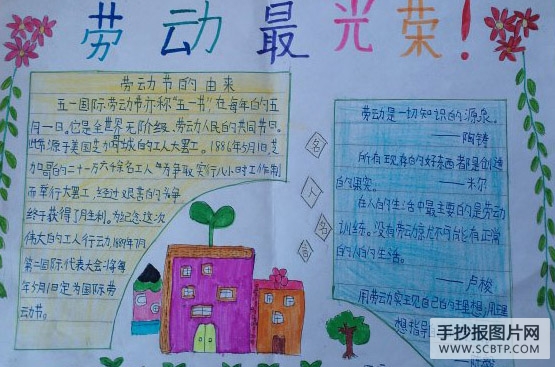 劳动最光荣!
劳动节的由来
五一国际劳动节亦称"五一节",在每年的五
月一日。它是全世界无阶级、劳动人民的共同节日。
此源于美国芝加哥城的工人大罢工。1886年5月1日芝
加哥的二十一万六千余名工人为争取实行八小时工作制
而举行大罢工,经过艰苦的
终于获得了胜利。为纪念这次
伟大的工人行动1889年7月
第二国际代表大会将每
年5月1日定为国际劳
动节。
名
人
名
言
劳动是一切知识的源泉。
——陶铸
所有现存的好东西都是创造
的果实。
——米尔
在人的生活中最主要的是劳动
训练。没有劳动就不可能有正常
的人的生活。
——卢梭
用劳动实现自己的理想,用理
想指导
手抄报图片网
WWW.SCBTP.COM